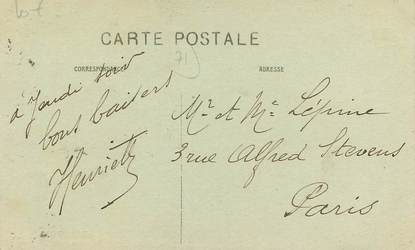 CARTE POSTALE
CORRESPONDANCE
ADRESSE
71
à Jeudi soir
bons baisers
Henriette
Mr et Me Lépine
3 rue Alfred Stevens
Paris